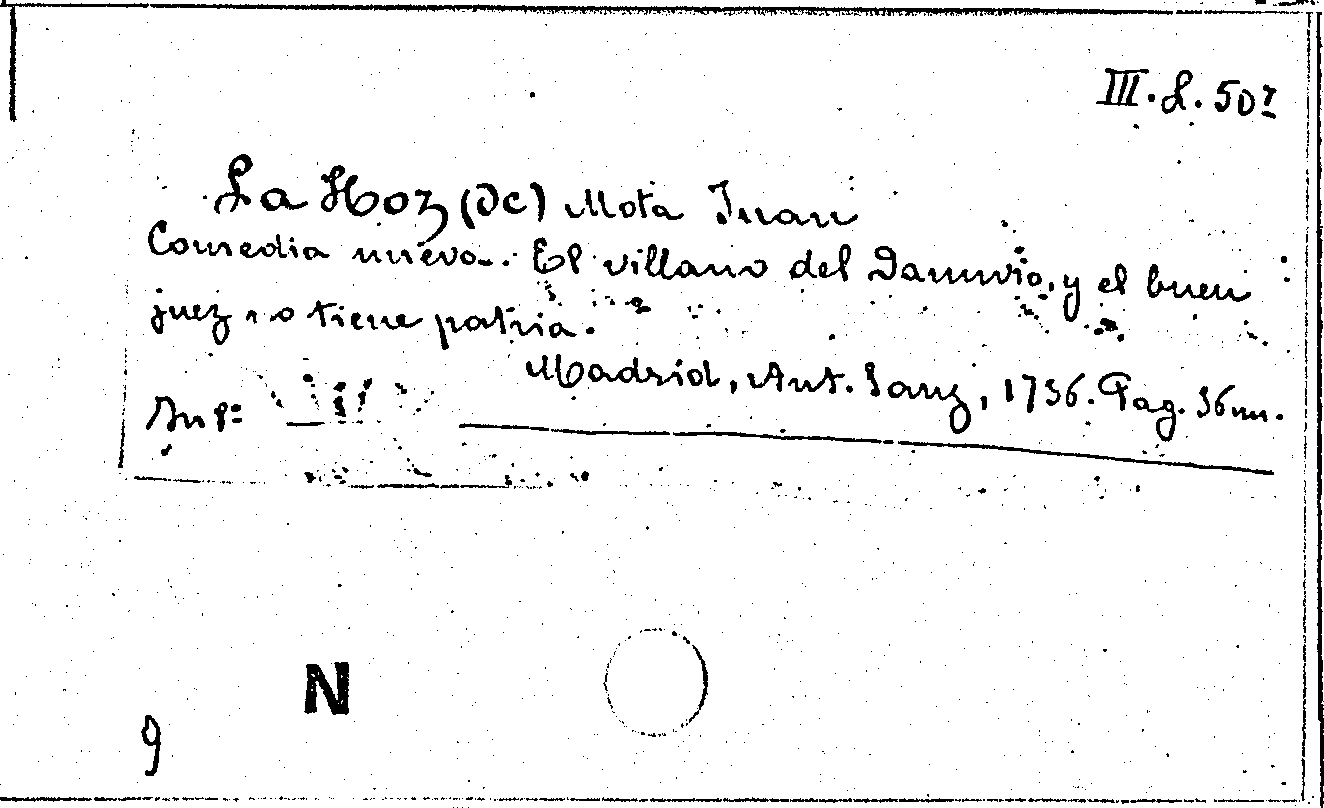 III. L. 50⁷
La Hoz (de) Mota Juan
Comedia nueva. El villano del Danuvio, y el buen
juez no tiene patria.
Madrid, Ant. Sanz, 1736. Pag. 36 nn.
In 8º
N
9